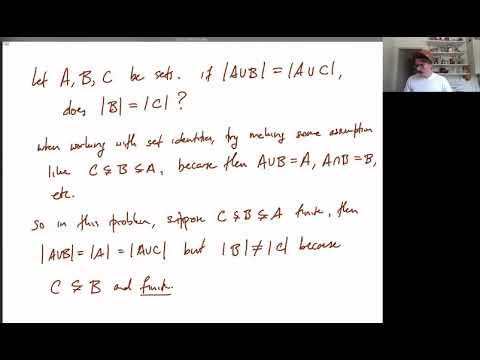 Let A, B, C be sets. if |A∪B| = |A∪C|,
does |B| = |C| ?
when working with set identities, try making some assumption
like C ⊊ B ⊊ A, because then A∪B = A, A∩B = B,
etc.
So in this problem, suppose C ⊊ B ⊊ A finite, then
|A∪B| = |A| = |A∪C| but |B| ≠ |C| because
C ⊊ B and finite.